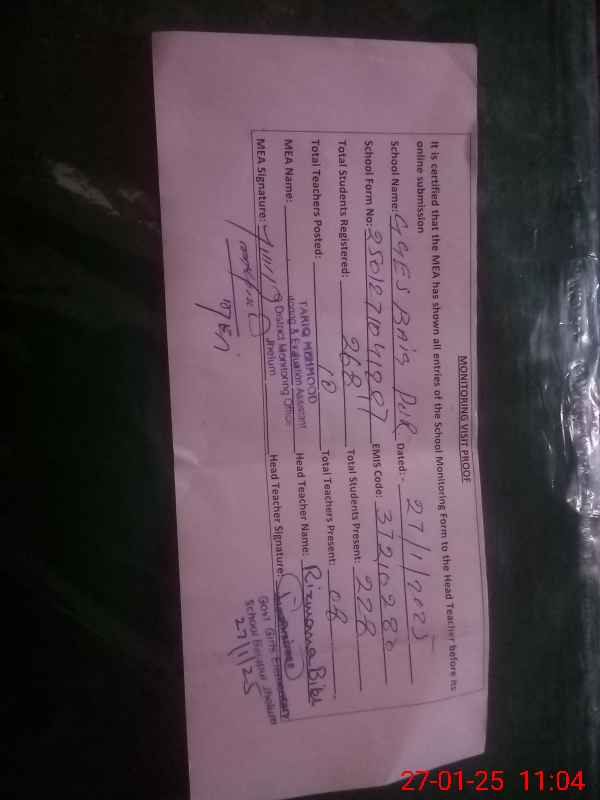 MONITORING VISIT PROOF
It is certified that the MEA has shown all entries of the School Monitoring Form to the Head Teacher before its
online submission
School Name: GGES BAIS PUR Dated:- 27/1/2025
School Form No: EMIS Code: 37210280
Total Students Registered: 268 Total Students Present: 228
Total Teachers Posted: 10 Total Teachers Present: 08
MEA Name: TARIQ MEHMOOD Head Teacher Name: Rizwana Bibi
Monitoring & Evaluation Assistant
O District Monitoring Office
Jhelum
MEA Signature: Head Teacher Signature:
Govt Girls Elementary
School Jhelum
27/1/25
27-01-25 11:04